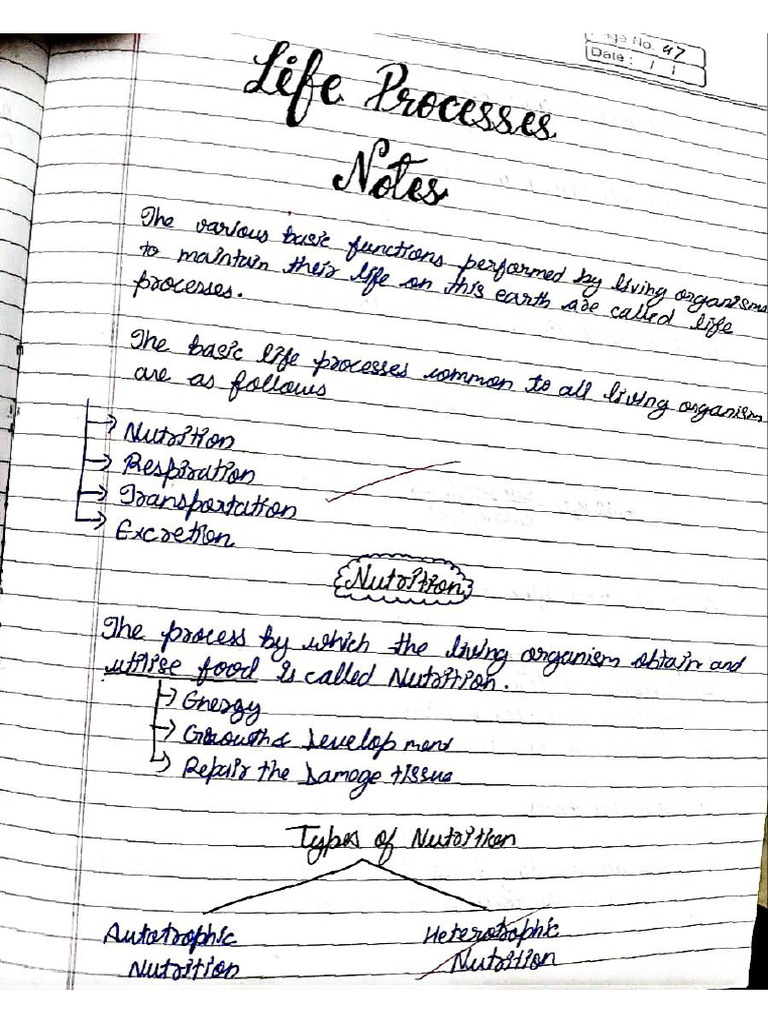 Page No. 47
Date: / /
Life Processes
Notes
The various basic functions performed by living organisms
to maintain their life on this earth are called life
processes.
The basic life processes common to all living organism
are as follows
→ Nutrition
→ Respiration
→ Transportation
→ Excretion
Nutrition
The process by which the living organism obtain and
utilise food is called Nutrition.
→ Energy
→ Growth & Development
→ Repair the Damage tissue
Types of Nutrition
Autotrophic Heterotrophic
Nutrition Nutrition